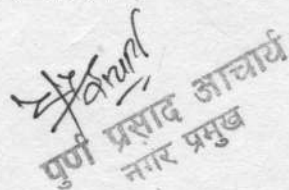 पुर्ण प्रसाद आचार्य
नगर प्रमुख